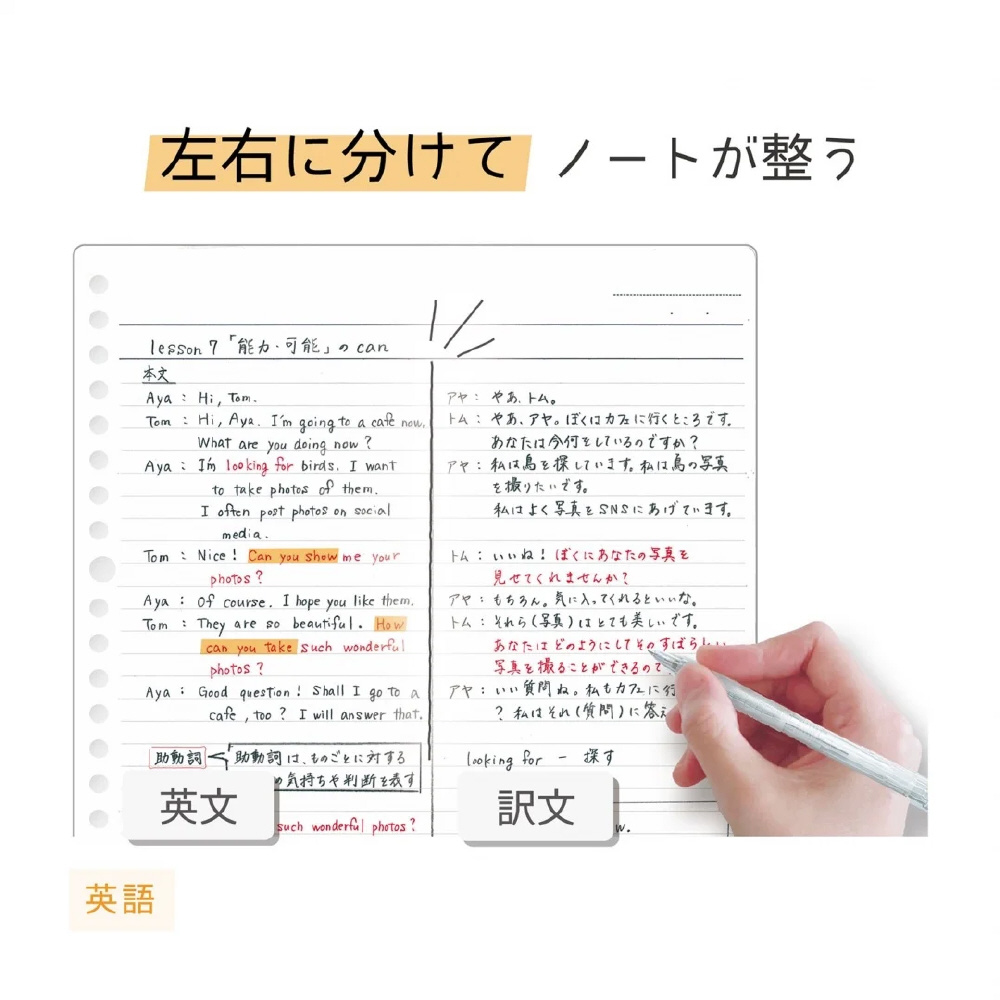 左右に分けて ノートが整う
lesson 7 「能力・可能」の can
本文
Aya : Hi, Tom.
Tom : Hi, Aya. I'm going to a cafe now.
What are you doing now?
Aya : I'm looking for birds. I want
to take photos of them.
I often post photos on social
media.
Tom : Nice! Can you show me your
photos?
Aya : Of course. I hope you like them.
Tom : They are so beautiful. How
can you take such wonderful
photos?
Aya : Good question! Shall I go to a
cafe, too? I will answer that.
助動詞 助動詞は、ものごとに対する
気持ちや判断を表す
such wonderful photos?
アヤ : やあ、トム。
トム : やあ、アヤ。ぼくはカフェに行くところです。
あなたは今何をしているのですか?
アヤ : 私は鳥を探しています。私は鳥の写真
を撮りたいです。
私はよく写真をSNSにあげています。
トム : いいね! ぼくにあなたの写真を
見せてくれませんか?
アヤ : もちろん。気に入ってくれるといいな。
トム : それら(写真)はとても美しいです。
あなたはどのようにしてそのすばらしい
写真を撮ることができるので
アヤ : いい質問ね。私もカフェに行
? 私はそれ(質問)に答え
looking for – 探す
w.
英文
訳文
英語